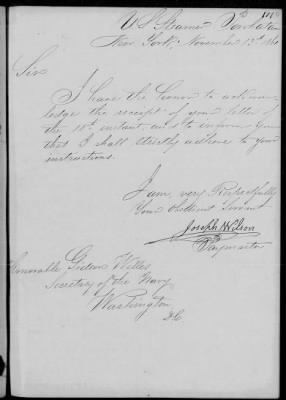 U.S. Steamer
New York, November 13th
Sir
I have the honor to acknow-
ledge the receipt of your letter of
the 10th instant, and to inform you
that I shall strictly adhere to your
instructions.
I am, very Respectfully
Your Obedient Servant
Joseph Wilson
Paymaster
Honorable Gideon Welles
Secretary of the Navy
Washington
D.C.